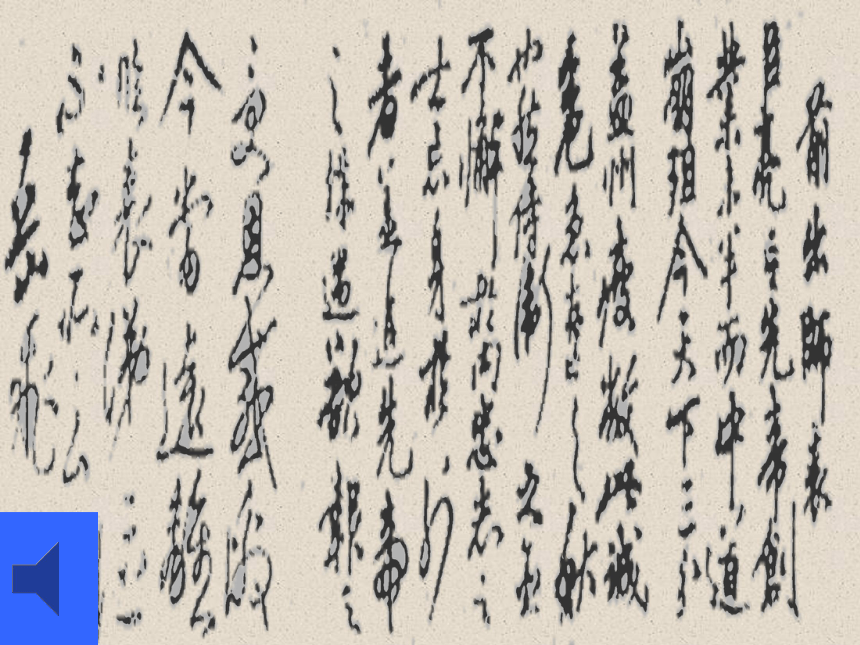 前出師表
臣亮言先帝創
業未半而中道
崩殂今天下三分
益州疲敝此誠
危急存亡之秋
也然侍衛之臣
不懈於內忠志之
士忘身於外
者蓋追先帝
之殊遇欲報之
受恩感激
今當遠離
臨表涕泣
不知所云
岳飛